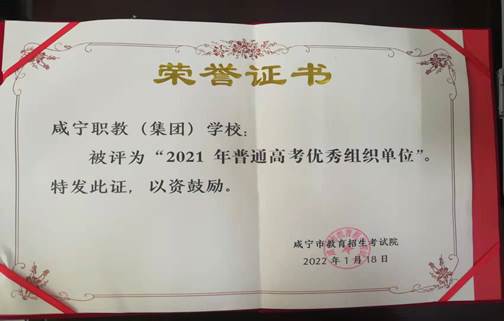 荣誉证书
咸宁职教（集团）学校：
被评为“2021 年普通高考优秀组织单位”。
特发此证，以资鼓励。
咸宁市教育招生考试院
2022 年 1 月 18 日